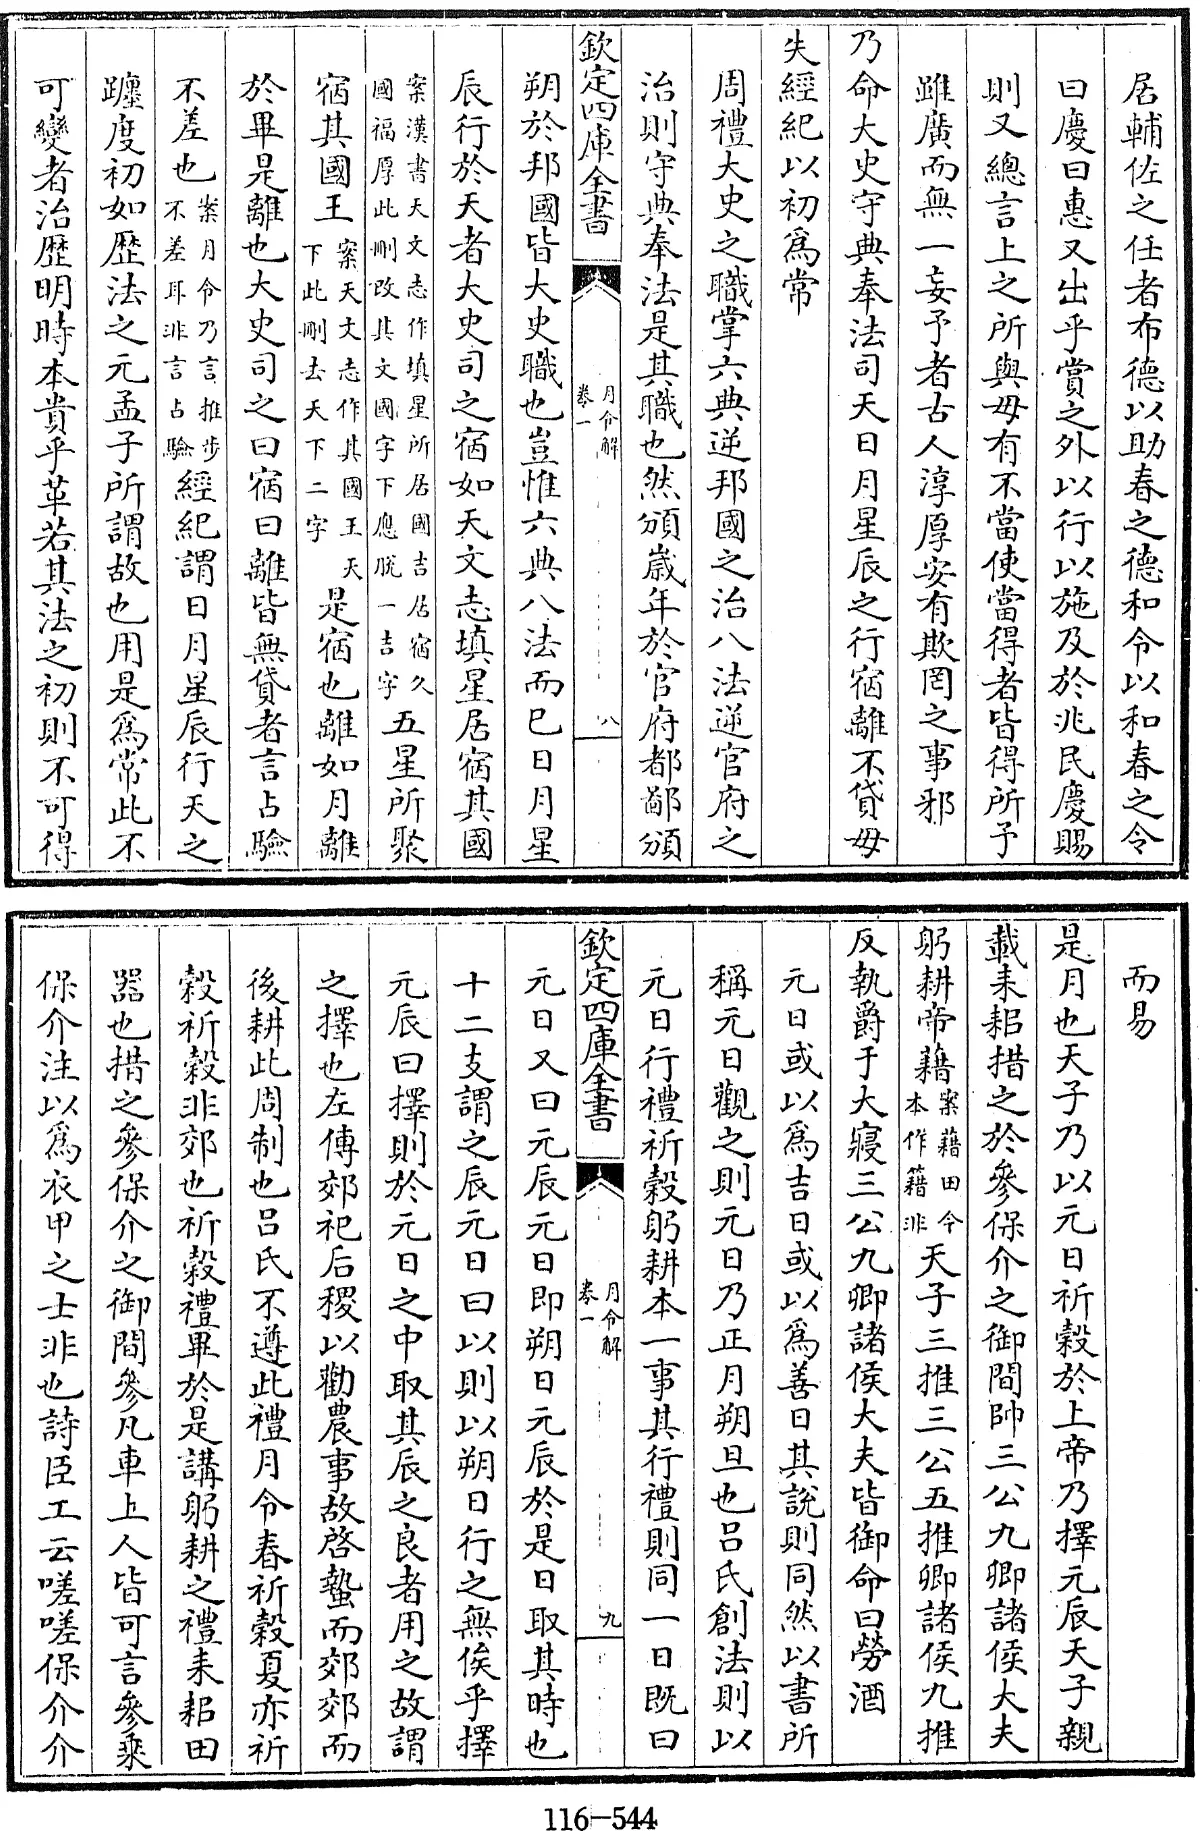 居輔佐之任者布德以助春之德和令以和春之令
曰慶曰惠又出乎賞之外以行以施及於兆民慶賜
則又總言上之所與毋有不當使當得者皆得所予
雖廣而無一妄予者古人淳厚安有欺罔之事邪
乃命大史守典奉法司天日月星辰之行宿離不貸毋
失經紀以初爲常
周禮大史之職掌六典逆邦國之治八法逆官府之
治則守典奉法是其職也然頒歲年於官府都鄙頒
欽定四庫全書
月令解
卷一
八
朔於邦國皆大史職也豈惟六典八法而已日月星
辰行於天者大史司之宿如天文志填星居宿其國
案漢書天文志作填星所居國吉居宿久
國福厚此刪改其文國字下應脫一吉字
五星所聚
宿其國王
案天文志作其國王天
下此刪去天下二字
是宿也離如月離
於畢是離也大史司之曰宿曰離皆無貸者言占驗
不差也
案月令乃言推步
不差耳非言占驗
經紀謂日月星辰行天之
躔度初如歷法之元孟子所謂故也用是爲常此不
可變者治歷明時本貴乎革若其法之初則不可得
而易
是月也天子乃以元日祈穀於上帝乃擇元辰天子親
載耒耜措之於參保介之御間帥三公九卿諸侯大夫
躬耕帝藉
案藉田今
本作籍非
天子三推三公五推卿諸侯九推
反執爵于大寢三公九卿諸侯大夫皆御命曰勞酒
元日或以爲吉日或以爲善日其說則同然以書所
稱元日觀之則元日乃正月朔旦也呂氏創法則以
元日行禮祈穀躬耕本一事其行禮則同一日既曰
欽定四庫全書
月令解
卷一
九
元日又曰元辰元日即朔日元辰於是日取其時也
十二支謂之辰元日曰以則以朔日行之無俟乎擇
元辰曰擇則於元日之中取其辰之良者用之故謂
之擇也左傳郊祀后稷以勸農事故啓蟄而郊郊而
後耕此周制也呂氏不遵此禮月令春祈穀夏亦祈
穀祈穀非郊也祈穀禮畢於是講躬耕之禮耒耜田
器也措之參保介之御間參凡車上人皆可言參乘
保介注以爲衣甲之士非也詩臣工云嗟嗟保介介
116-544